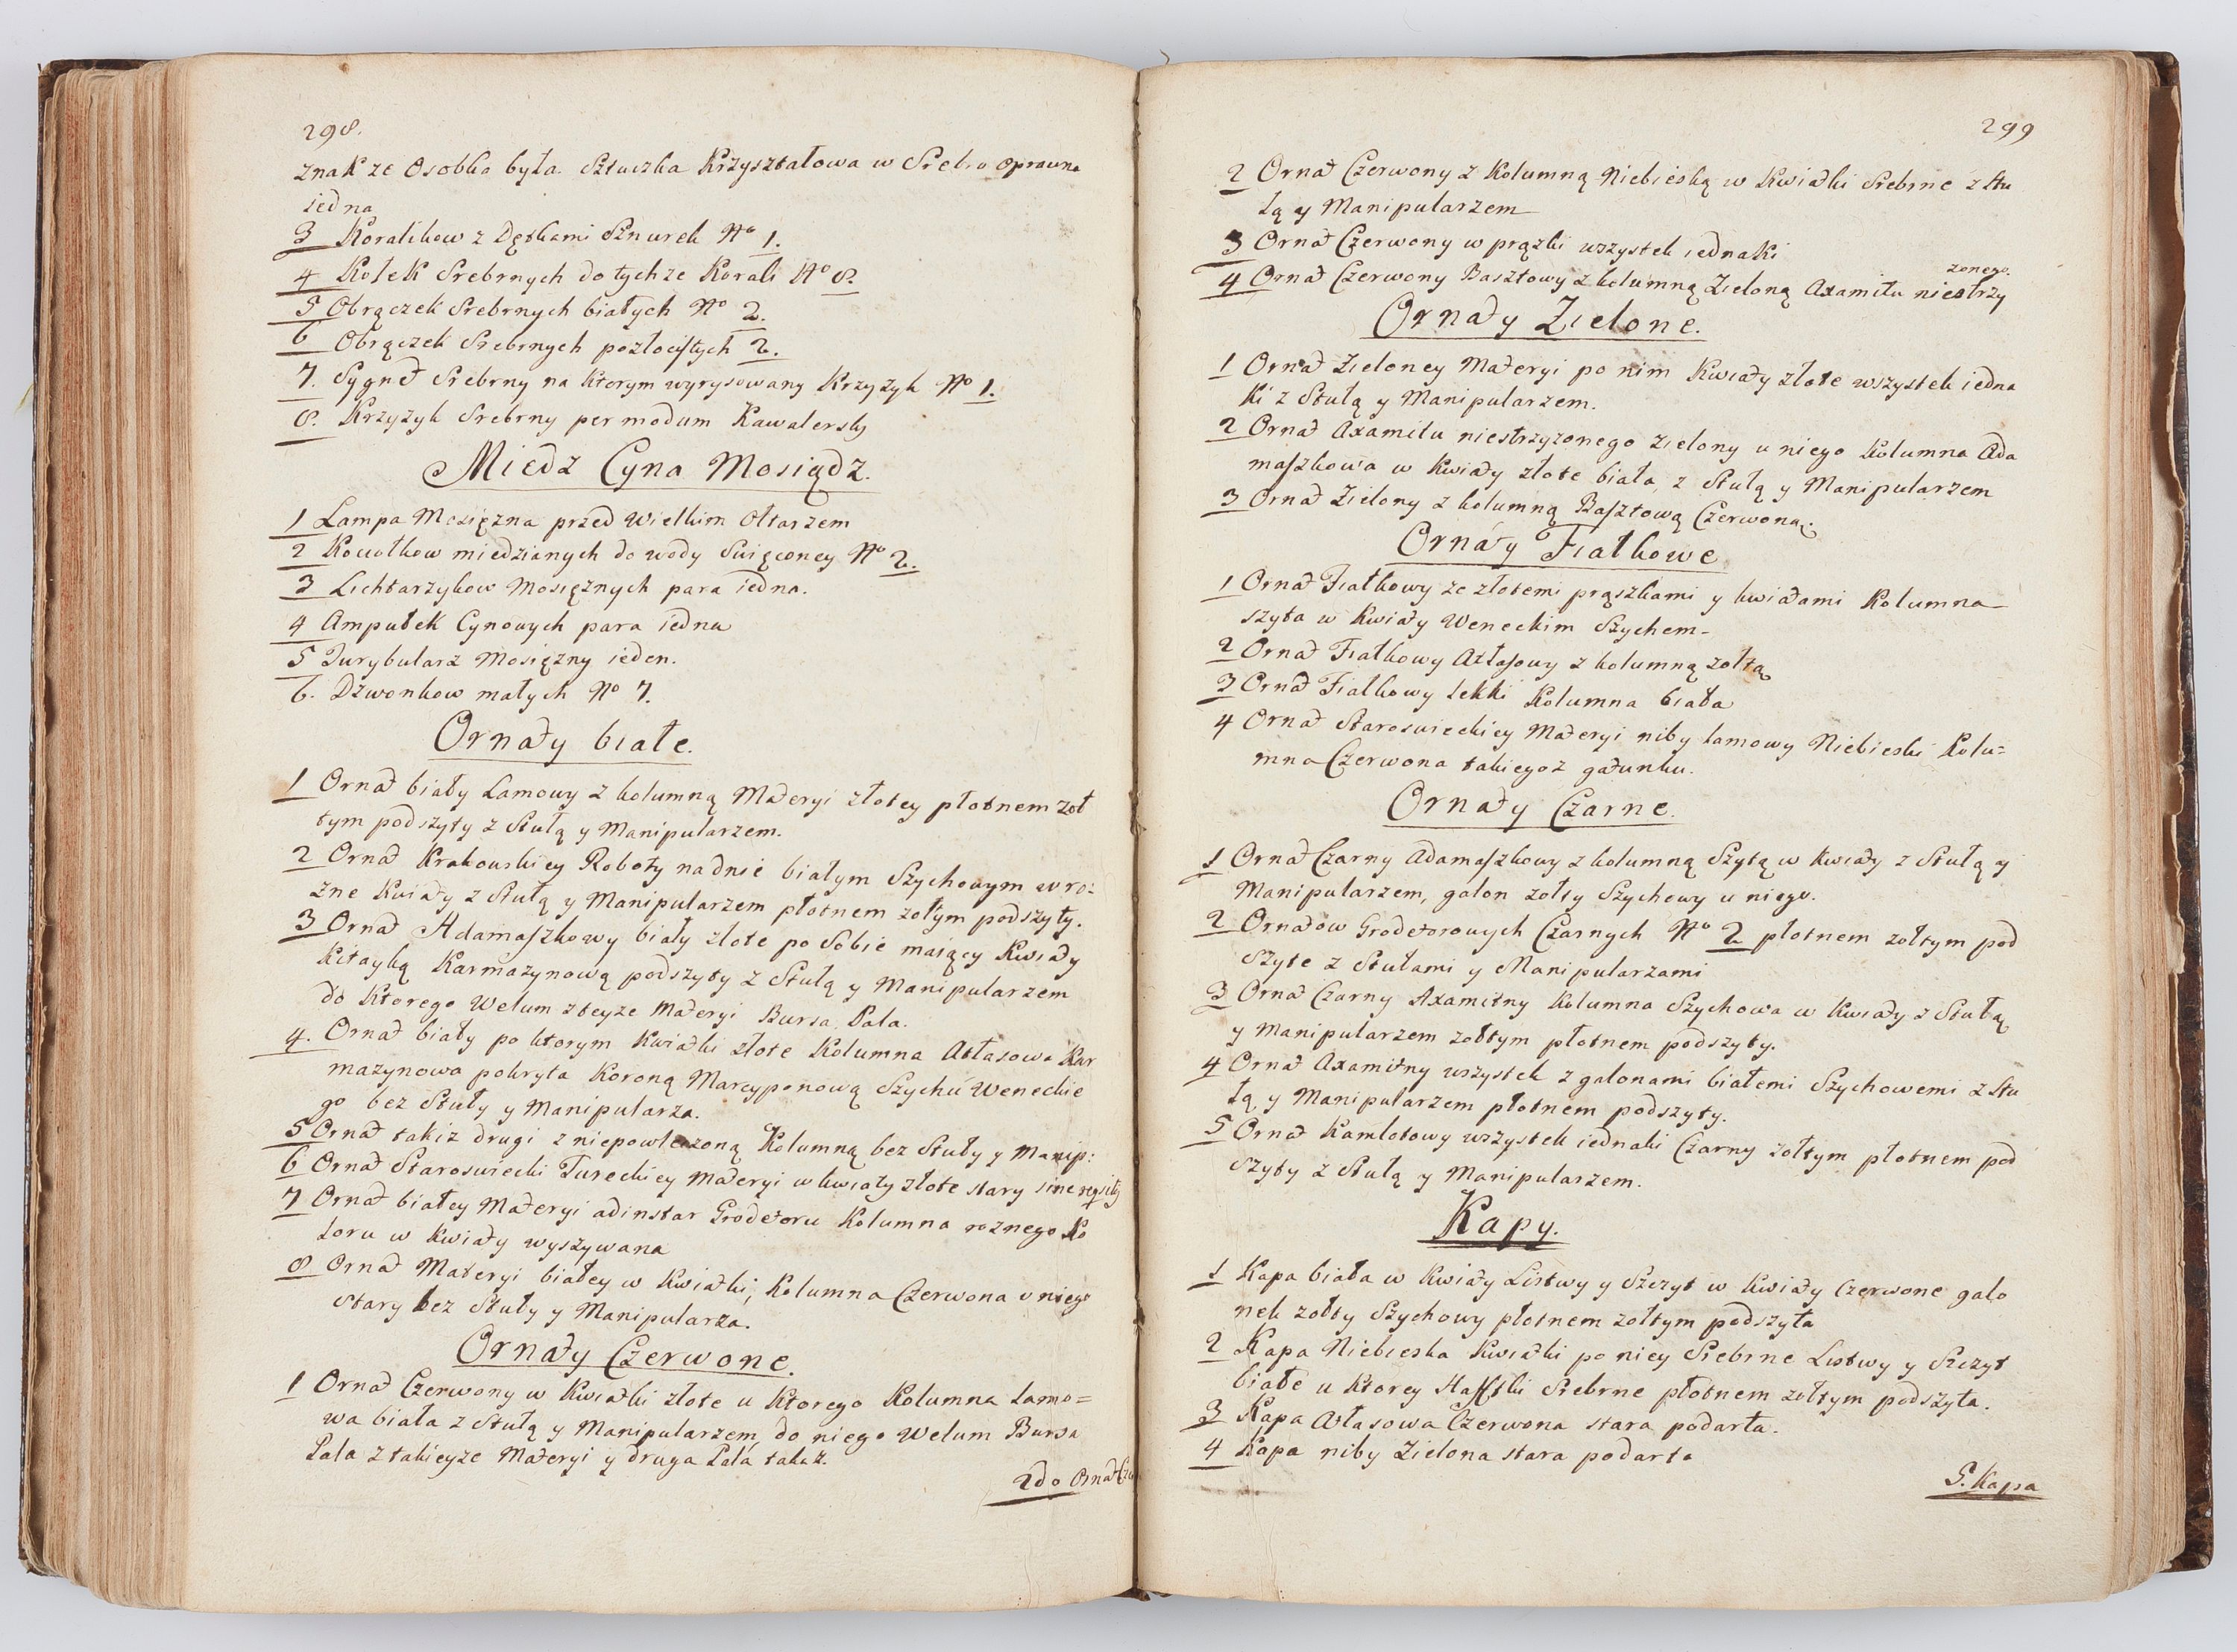 298.
znak ze Osobko była. Sztuczka Krzyształowa w Srebro oprawna
iedna
3 Koralikow z Dętkami Sznurek No 1.
4 Kołek Srebrnych do tychze Korali No 8.
5 Obrączek Srebrnych białych No 2.
6 Obrączek Srebrnych pozłocistych 2.
7. Sygnet Srebrny na ktorym wyrysowany Krzyżyk No 1.
8. Krzyżyk Srebrny per modum Kawalersky
Miedz Cyna Mosiądz.
1 Lampa Mosiężna przed Wielkim Ołtarzem
2 Kociołkow miedzianych do wody Swięconey No 2.
3 Lichtarzykow Mosiężnych para iedna.
4 Ampułek Cynowych para iedna
5 Turybularz Mosiężny ieden.
6. Dzwonkow małych No 7.
Ornaty białe.
1 Ornat biały Lamowy z kolumną Materyi złotey płotnem zoł
tym podszyty z Stułą y Manipularzem.
2 Ornat Krakowskiey Roboty na dnie białym Szychowym w ro=
zne Kwiaty z Stułą y Manipularzem płotnem zołtym podszyty.
3 Ornat Adamaszkowy biały złote po Sobie maiący Kwiaty
Kitayką Karmazynową podszyty z Stułą y Manipularzem
do Ktorego Welum z teyze Materyi Bursa, Pala.
4. Ornat biały po ktorym Kwiatki złote Kolumna Atłasowa Kar
mazynowa pokryta Koroną Marcyponową Szychu Weneckie
go bez Stuły y Manipularza.
5 Ornat takiz drugi z niepowleczoną Kolumną bez Stuły y Manip:
6 Ornat Staroswiecki Tureckiey Materyi w kwiaty złote stary sine reqsitis
7 Ornat białey Materyi adinstar Grodetoru Kolumna roznego Ko
loru w Kwiaty wyszywana
8 Ornat Materyi białey w Kwiatki, Kolumna Czerwona u niego
stary bez Stuły y Manipularza.
Ornaty Czerwone.
1 Ornat Czerwony w Kwiatki złote u Ktorego Kolumna Lamo=
wa biała z Stułą y Manipularzem, do niego Welum Bursa
Pala z takieyze Materyi y druga Pala takaż.
2do Ornat Cze
299
2 Ornat Czerwony z Kolumną Niebieską w Kwiatki Srebrne z Stu
łą y Manipularzem
3 Ornat Czerwony w prązki wszystek iednaki
4 Ornat Czerwony Basztowy z kolumną Zieloną Axamitu niestrzy
zonego.
Ornaty Zielone.
1 Ornat Zieloney Materyi po nim Kwiaty złote wszystek iedna
ki z Stułą y Manipularzem.
2 Ornat Axamitu niestrzyzonego zielony u niego Kolumna Ada
maszkowa w Kwiaty złote biała, z Stułą y Manipularzem
3 Ornat Zielony z kolumną Basztową Czerwoną.
Ornaty Fiałkowe
1 Ornat Fiałkowy ze złotemi prąszkami y kwiatami Kolumna
szyta w Kwiaty Weneckim Szychem
2 Ornat Fiałkowy Atłasowy z kolumną zołtą
3 Ornat Fiałkowy lekki Kolumna biała
4 Ornat Staroswieckiey Materyi niby lamowy Niebieski Kolu=
mna Czerwona takiegoz gatunku.
Ornaty Czarne.
1 Ornat Czarny Adamaszkowy z kolumną Szytą w Kwiaty z Stułą y
Manipularzem, galon zołty Szychowy u niego.
2 Ornatow Grodetorowych Czarnych No 2 płotnem zołtym pod
szyte z Stułami y Manipularzami
3 Ornat Czarny Axamitny Kolumna Szychowa w Kwiaty z Stułą
y Manipularzem zołtym płotnem podszyty.
4 Ornat Axamitny wszystek z galonami białemi Szychowemi z Stu
łą y Manipularzem płotnem podszyty.
5 Ornat Kamlotowy wszystek iednaki Czarny zołtym płotnem pod
szyty z Stułą y Manipularzem.
Kapy.
1 Kapa biała w Kwiaty Listwy y Szczyt w Kwiaty Czerwone galo
nek zołty Szychowy płotnem zołtym podszyta
2 Kapa Niebieska Kwiatki po niey Srebrne Listwy y Szczyt
białe u Ktorey Haftki Srebrne płotnem zołtym podszyta.
3 Kapa Atłasowa Czerwona stara podarta.
4 Kapa niby Zielona stara podarta
5. Kapa